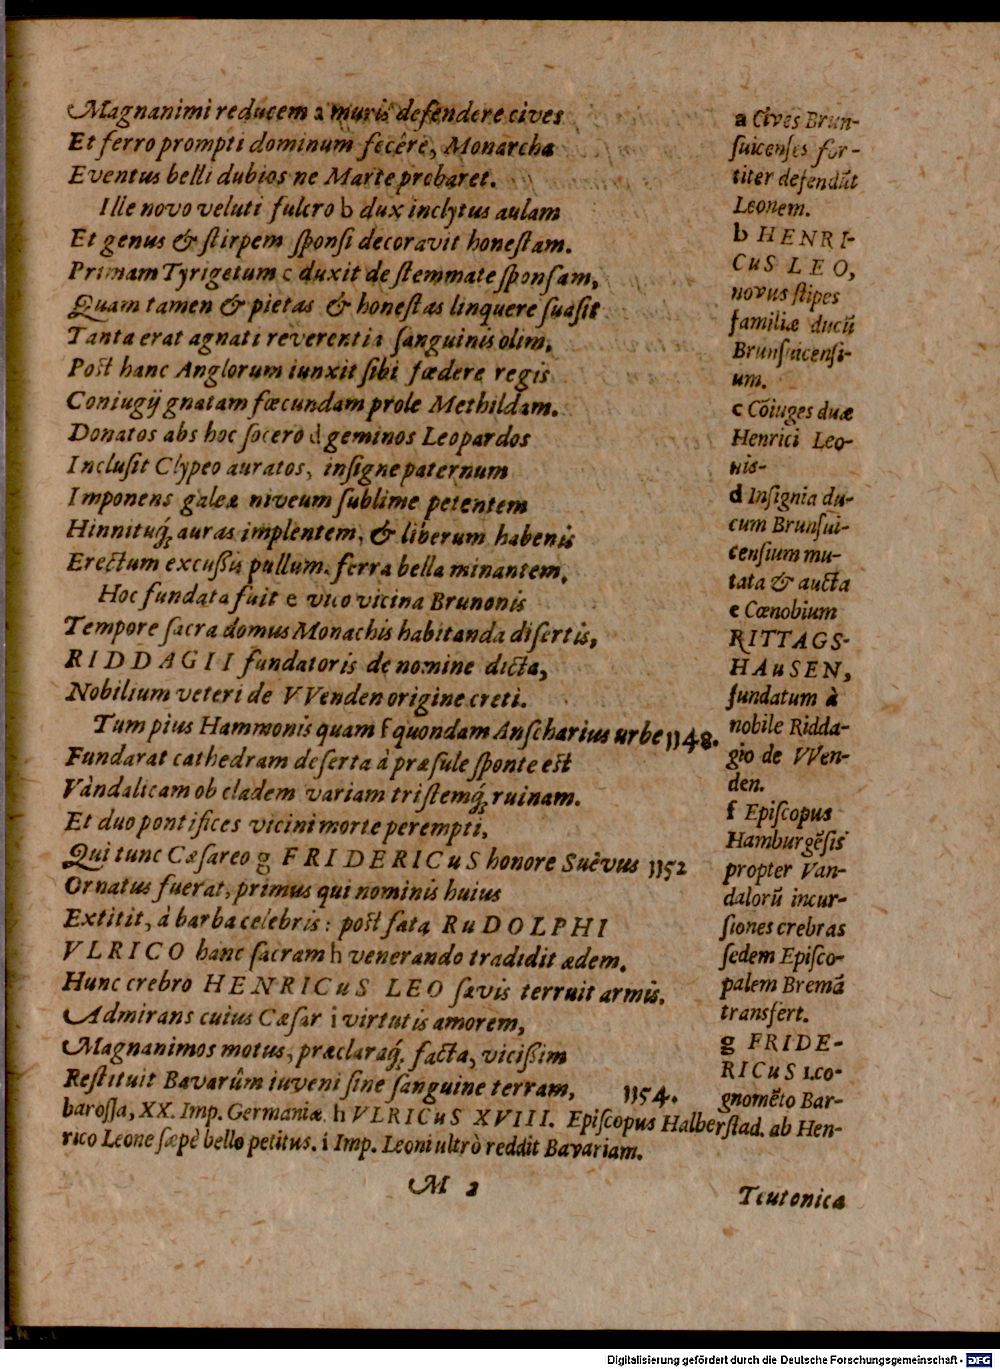 Magnanimi reducem a muris defendere cives
Et ferro prompti dominum fecêre, Monarcha
Eventus belli dubios ne Marte probaret.
Ille novo veluti fulcro b dux inclytus aulam
Et genus & stirpem sponsi decoravit honestam.
Primam Tyrigetum c duxit de stemmate sponsam,
Quam tamen & pietas & honestas linquere suasit
Tanta erat agnati reverentia sanguinis olim,
Post hanc Anglorum iunxit sibi fœdere regis
Coniugij gnatam fœcundam prole Methildam.
Donatos abs hoc socero d geminos Leopardos
Inclusit Clypeo auratos, insigne paternum
Imponens galeæ niveum sublime petentem
Hinnituq́; auras implentem, & liberum habenis
Erectum excußis pullum. ferra bella minantem,
Hoc fundata fuit e vico vicina Brunonis
Tempore sacra domus Monachis habitanda disertis,
RIDDAGII fundatoris de nomine dicta,
Nobilium veteri de VVenden origine creti.
Tum pius Hammonis quam f quondam Anscharius urbe 1148.
Fundarat cathedram deserta à præsule sponte est
Vàndalicam ob cladem variam tristemq́; ruinam.
Et duo pontifices vicini morte perempti,
Qui tunc Cæsareo g FRIDERICuS honore Suêvus 1152
Ornatus fuerat, primus qui nominis huius
Extitit, à barba celebris: post fata RuDOLPHI
VLRICO hanc sacram h venerando tradidit ædem.
Hunc crebro HENRICuS LEO sævis terruit armis.
Admirans cuius Cæsar i virtutis amorem,
Magnanimos motus, præclaraq́; facta, vicißim
Restituit Bavarûm iuveni sine sanguine terram, 1154.
a Cives Brun-
suicenses for-
titer defendūt
Leonem.
b HENRI-
CuS LEO,
novus stipes
familiæ ducū
Brunsuicensi-
um.
c Cōiuges duæ
Henrici Leo-
nis-
d Insignia du-
cum Brunsui-
censium mu-
tata & aucta
e Cœnobium
RITTAGS-
HAuSEN,
fundatum à
nobile Ridda-
gio de VVen-
den.
f Episcopus
Hamburgēsis
propter Van-
dalorū incur-
siones crebras
sedem Episco-
palem Bremā
transfert.
g FRIDE-
RICuS 1. co-
gnomēto Bar-
barossa, XX. Imp. Germaniæ. h VLRICuS XVIII. Episcopus Halberstad. ab Hen-
rico Leone sæpè bello petitus. i Imp. Leoni ultrò reddit Bavariam.
M 2
Teutonica
Digitalisierung gefördert durch die Deutsche Forschungsgemeinschaft - DFG